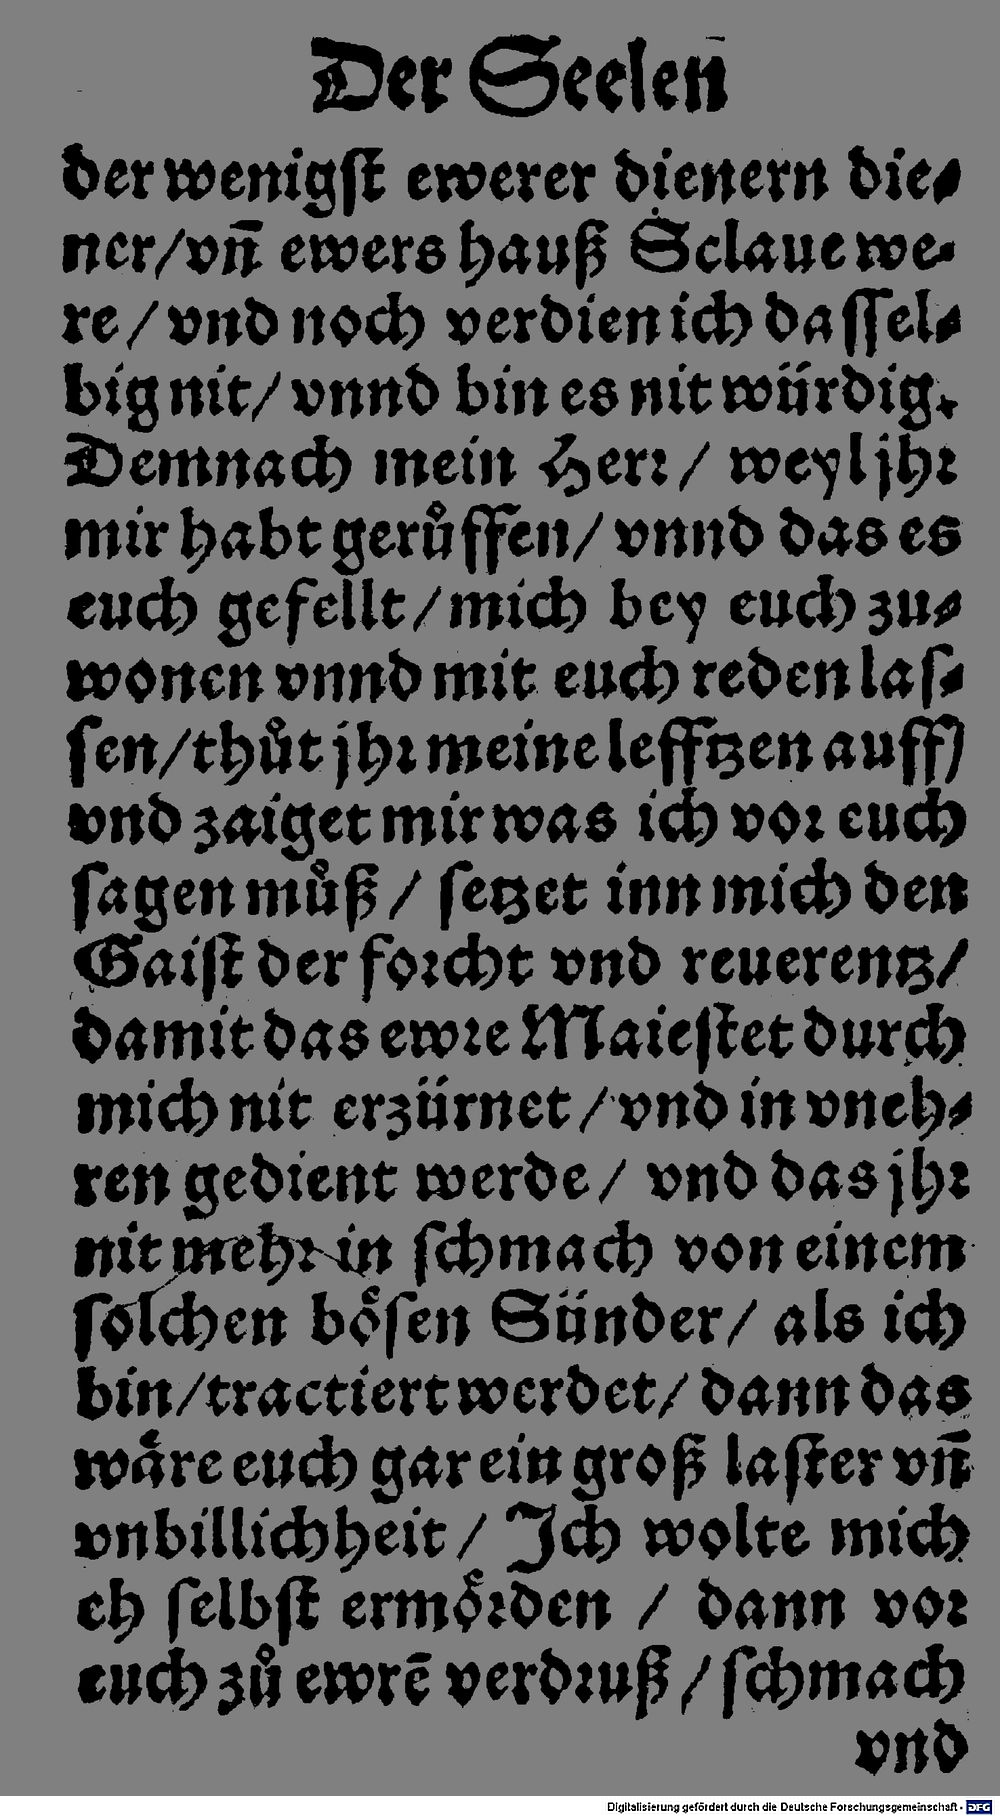 Der Seelen̄
der wenigſt ewerer dienern die⸗
ner/vn̄ ewers hauß Sclaue we⸗
re / vnd noch verdien ich daſſel⸗
big nit/ vnnd bin es nit würdig.
Demnach mein Herꝛ / weyl jhꝛ
mir habt gerůffen/ vnnd das es
euch gefellt/mich bey euch zu⸗
wonen vnnd mit euch reden laſ⸗
ſen/thůt jhꝛ meine lefftzen auff)
vnd zaiget mir was ich voꝛ euch
ſagen můß / ſetzet inn mich den
Gaiſt der foꝛcht vnd reuerentz/
damit das ewꝛe Maieſtet durch
mich nit erzürnet / vnd in vneh⸗
ren gedient werde / vnd das jhꝛ
nit mehꝛ in ſchmach von einem
ſolchen boͤſen Sünder / als ich
bin/tractiert werdet/ dann das
waͤre euch gar ein groß laſter vn̄
vnbillichheit / Ich wolte mich
eh ſelbſt ermoͤꝛden / dann voꝛ
euch zů ewrē verdꝛuß /ſchmach
vnd
Digitalisierung gefördert durch die Deutsche Forschungsgemeinschaft - DFG